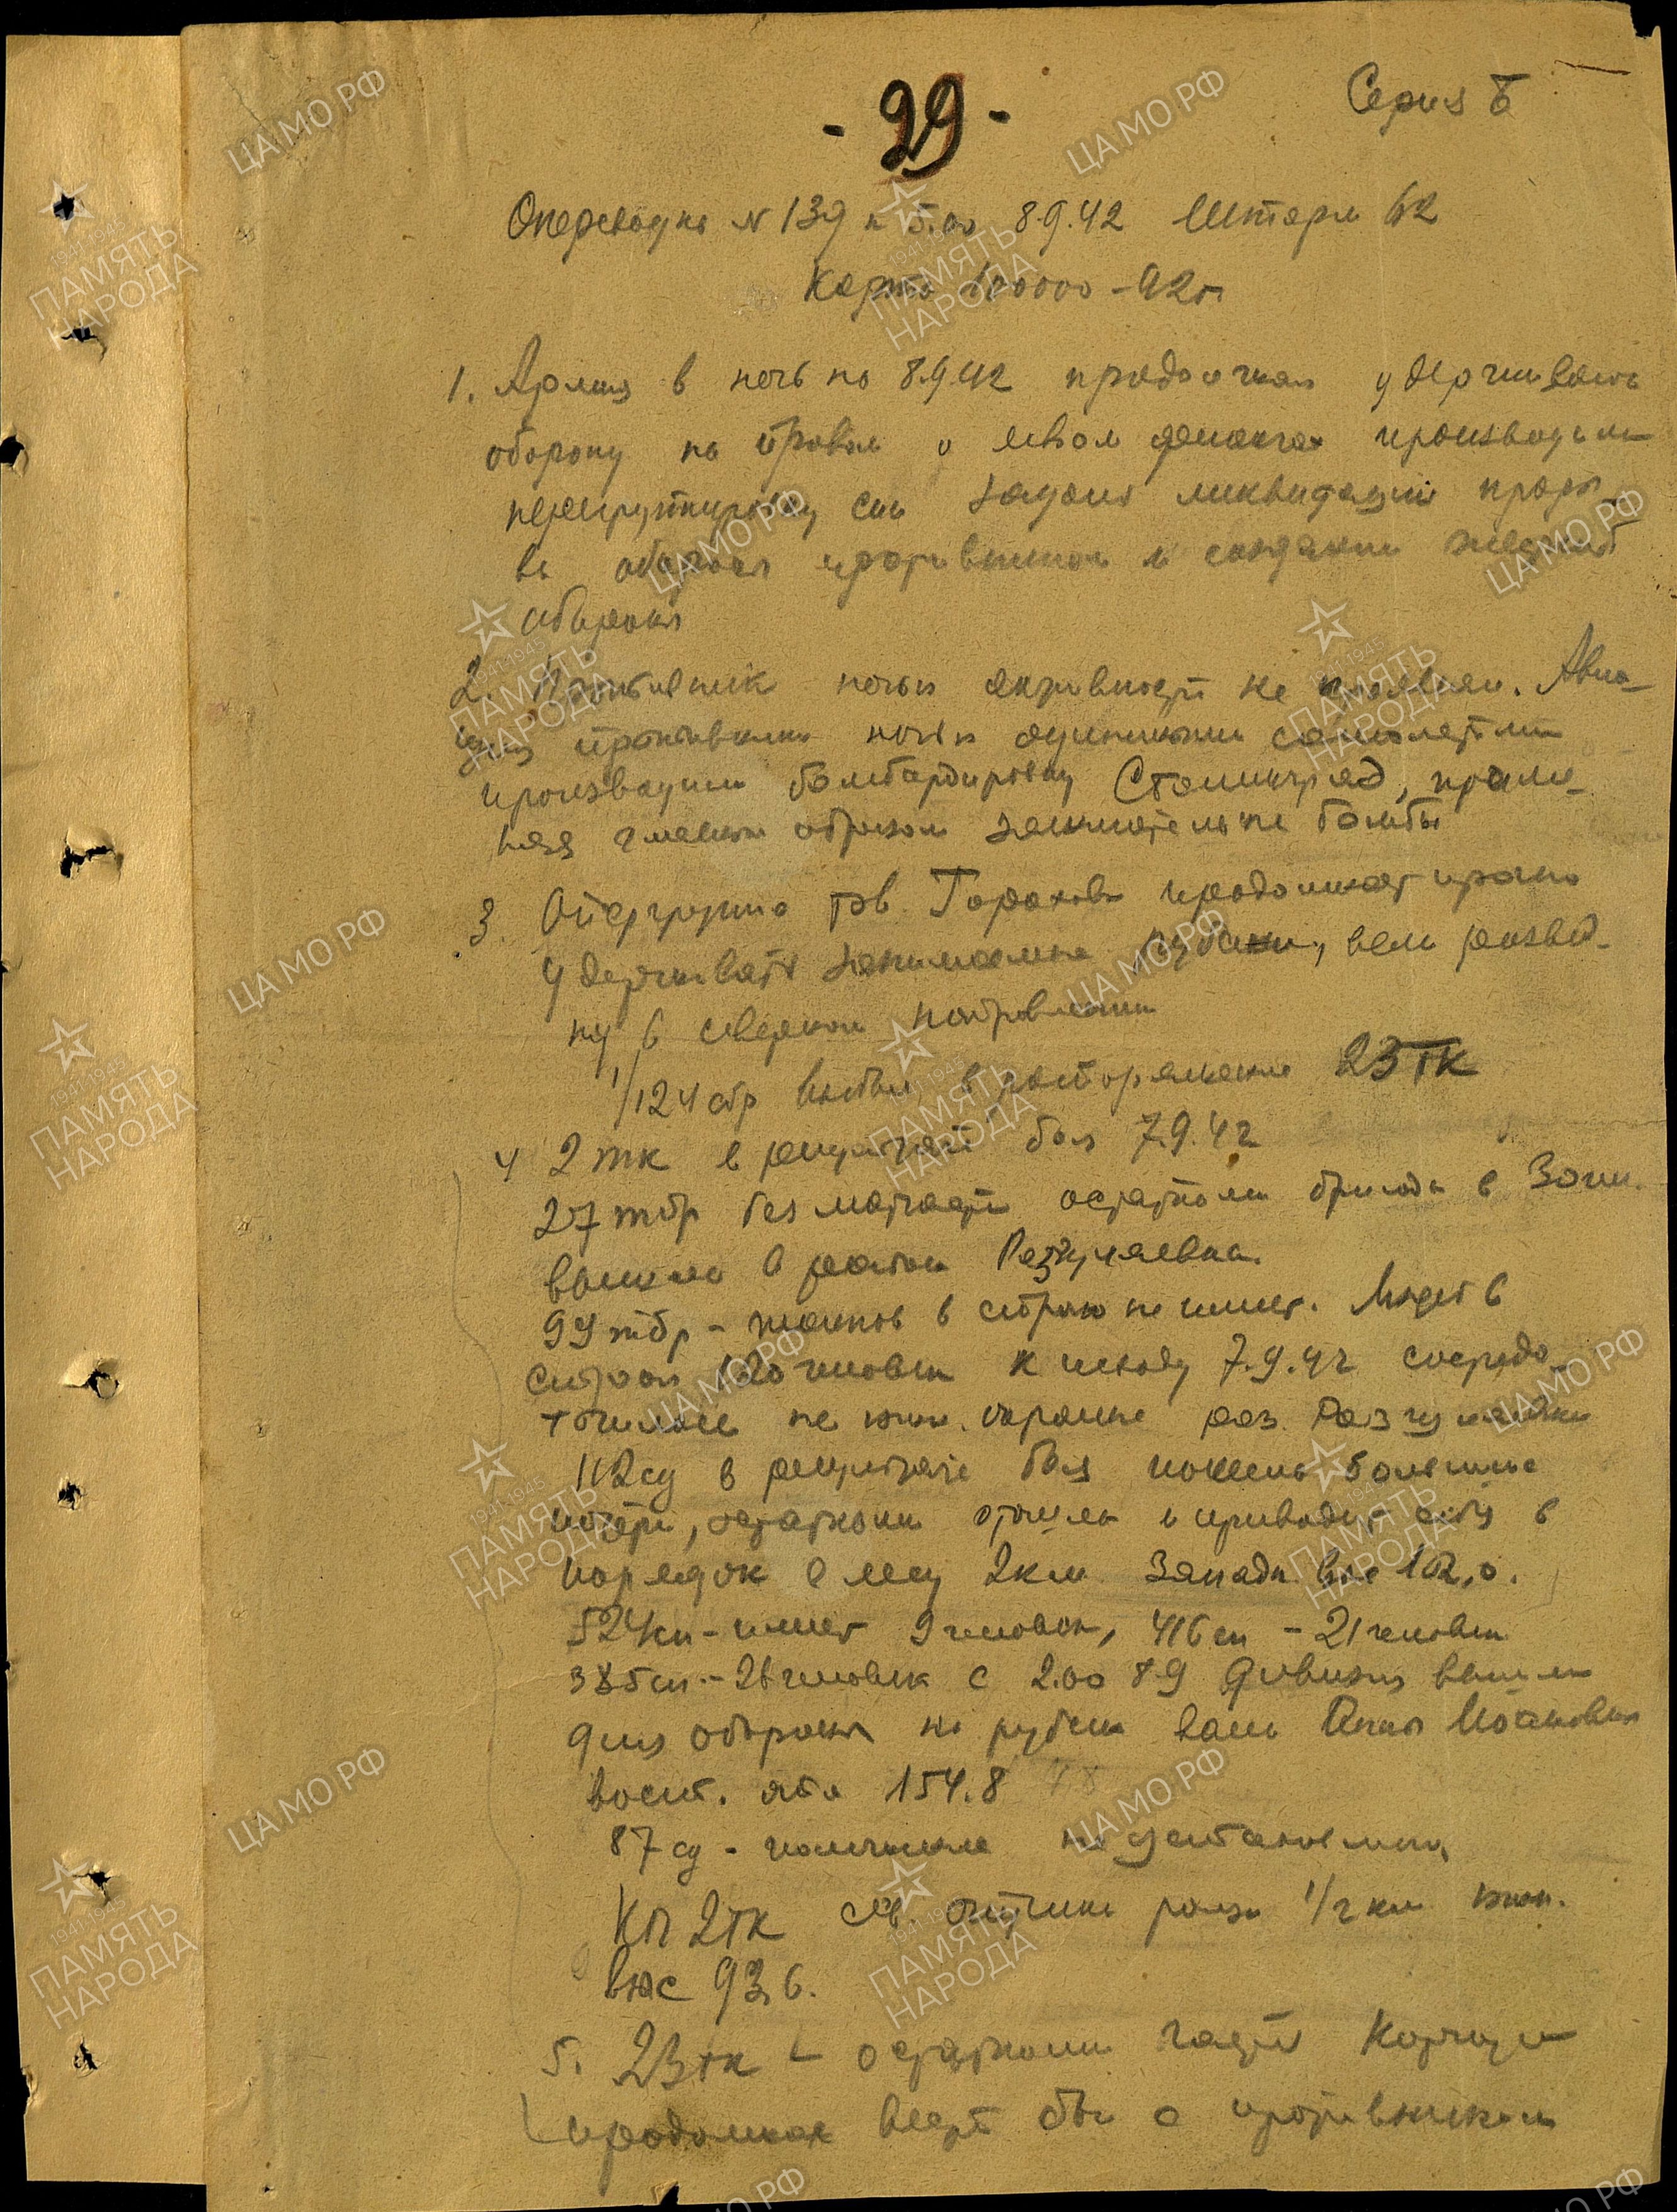 Серия Б
- 29 -
Оперсводка № 139 к 5.00 8.9.42 Штарм 62
Карта 100000 - 42 г
1. Армия в ночь на 8.9.42 продолжая удерживать
оборону на правом и левом флангах производила
перегруппировку сил задача ликвидации проры
ва обороны противником и создания жесткой
обороны
2. Противник ночью активности не проявлял. Авиа-
ция противника ночью одиночными самолетами
производила бомбардировку Сталинград, приме-
няя главным образом зажигательные бомбы
3. Опергруппа тов. Горохова продолжает прочно
удерживать занимаемые рубежи, вела развед-
ку в северном направлении
1/124 сбр выбыл в распоряжение 23 тк
4 2 тк в результате боя 7.9.42
27 тбр без матчасти остатком бригады в 30 чел.
вышла в район Разгуляевка.
99 тбр - танков в строю не имеет. Имеет в
строю 120 человек к исходу 7.9.42 сосредо-
точилась на юж. окраине раз. Разгуляевка
112 сд в результате боя понесла большие
потери, остатками отошла и приводит себя в
порядок в лесу 2 км западн. выс 102,0.
524 сп - имеет 9 человек, 416 сп - 21 человек
385 сп - 26 человек с 2.00 8.9 дивизия вышла
для обороны на рубеж
вост. отм 154.8
87 сд - положение не установлено.
КП 2 тк сев. рощи 1/2 км юж.
выс 93,6.
5. 23 тк - остатками частей корпуса
продолжает вести бой с противником
ЦА МО РФ
1941-1945
ПАМЯТЬ
НАРОДА